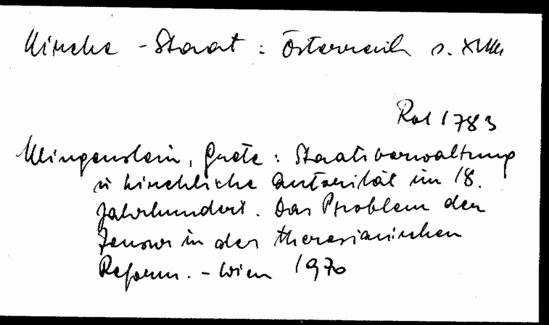 Kirche - Staat : Österreich s. XVIII
Rol 1783
Klingenstein, Grete : Staatsverwaltung
u kirchliche Autorität im 18.
Jahrhundert. Das Problem der
Zensur in der theresianischen
Reform. - Wien 1970